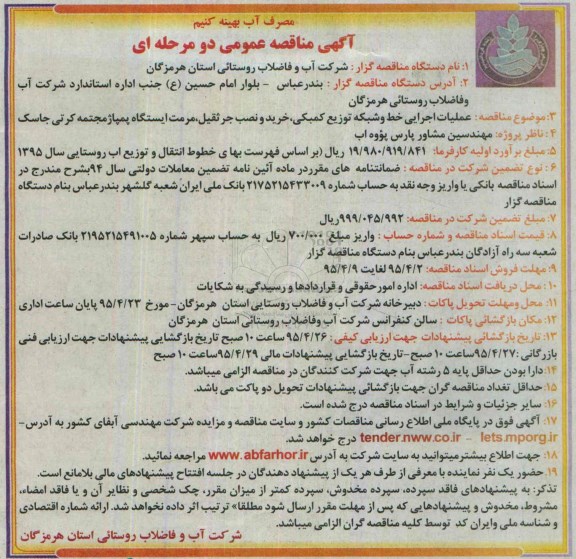 مصرف آب بهینه کنیم
آگهی مناقصه عمومی دو مرحله ای
۱: نام دستگاه مناقصه گزار : شرکت آب و فاضلاب روستائی استان هرمزگان
۲ : آدرس دستگاه مناقصه گزار : بندرعباس - بلوار امام حسین (ع) جنب اداره استاندارد شرکت آب
وفاضلاب روستائی هرمزگان
۳:موضوع مناقصه: عملیات اجرایی خط وشبکه توزیع کمبکی،خرید و نصب جرثقیل،مرمت ایستگاه پمپاژ مجتمعه کرتی جاسک
۴ : ناظر پروژه: مهندسین مشاور پارس پژوه اب
۵: مبلغ برآورد اولیه کارفرما: ۱۹/۹۸۰/۹۱۹/۸۴۱ ریال (بر اساس فهرست بها ی خطوط انتقال و توزیع اب روستایی سال ۱۳۹۵
۶ : نوع تضمین شرکت در مناقصه : ضمانتنامه های مقرر در ماده آئین نامه تضمین معاملات دولتی سال ۹۴بشرح مندرج در
اسناد مناقصه بانکی یا واریز وجه نقد به حساب شماره ۲۱۷۵۲۱۵۴۳۳۰۰۹ بانک ملی ایران شعبه گلشهر بندرعباس بنام دستگاه
مناقصه گزار
۷: مبلغ تضمین شرکت در مناقصه: ۹۹۹/۰۴۵/۹۹۲ریال
۸ : قیمت اسناد مناقصه و شماره حساب : واریز مبلغ ۷۰۰/۰۰۰ ریال به حساب سپهر شماره ۲۱۹۵۲۱۵۴۹۱۰۰۵ بانک صادرات
شعبه سه راه آزادگان بندرعباس بنام دستگاه مناقصه گزار
۹: مهلت فروش اسناد مناقصه: ۹۵/۴/۲ لغایت ۹۵/۴/۹
۱۰: محل دریافت اسناد مناقصه: اداره امور حقوقی و قراردادها و رسیدگی به شکایات
۱۱: محل ومهلت تحویل پاکات : دبیرخانه شرکت آب و فاضلاب روستایی استان هرمزگان - مورخ ۹۵/۴/۲۳ پایان ساعت اداری
۱۲: مکان بازگشائی پاکات : سالن کنفرانس شرکت آب وفاضلاب روستائی استان هرمزگان
۱۳: تاریخ بازگشائی پیشنهادات جهت ارزیابی کیفی : ۹۵/۴/۲۶ ساعت ۱۰ صبح تاریخ بازگشایی پیشنهادات جهت ارزیابی فنی
بازرگانی :۹۵/۴/۲۷ساعت ۱۰ صبح -تاریخ بازگشایی پیشنهادات مالی ۹۵/۴/۲۹ساعت ۱۰ صبح
۱۴: دارا بودن حداقل پایه ۵ رشته آب جهت شرکت کنندگان در مناقصه الزامی میباشد.
۱۵: حداقل تعداد مناقصه گران جهت بازگشائی پیشنهادات تحویل دو پاکت می باشد.
۱۶: سایر جزئیات و شرایط در اسناد مناقصه درج شده است.
۱۷: آگهی فوق در پایگاه ملی اطلاع رسانی مناقصات کشور و سایت مناقصه و مزایده شرکت مهندسی آبفای کشور به آدرس-
tender.nww.co.ir - lets.mporg.ir درج خواهد شد.
۱۸: جهت اطلاع بیشتر میتوانید به سایت شرکت به آدرس www.abfarhor.ir مراجعه نمائید.
۱۹: حضور یک نفر نماینده با معرفی از طرف هر یک از پیشنهاد دهندگان در جلسه افتتاح پیشنهادهای مالی بلامانع است.
تذکر: به پیشنهادهای فاقد سپرده، سپرده مخدوش، سپرده کمتر از میزان مقرر، چک شخصی و نظایر آن و یا فاقد امضاء،
مشروط، مخدوش و پیشنهادهایی که پس از مهلت مقرر ارسال شود مطلقا" ترتیب اثر داده نخواهد شد. ارائه شماره اقتصادی
و شناسه ملی وایران کد توسط کلیه مناقصه گران الزامی میباشد.
شرکت آب و فاضلاب روستائی استان هرمزگان